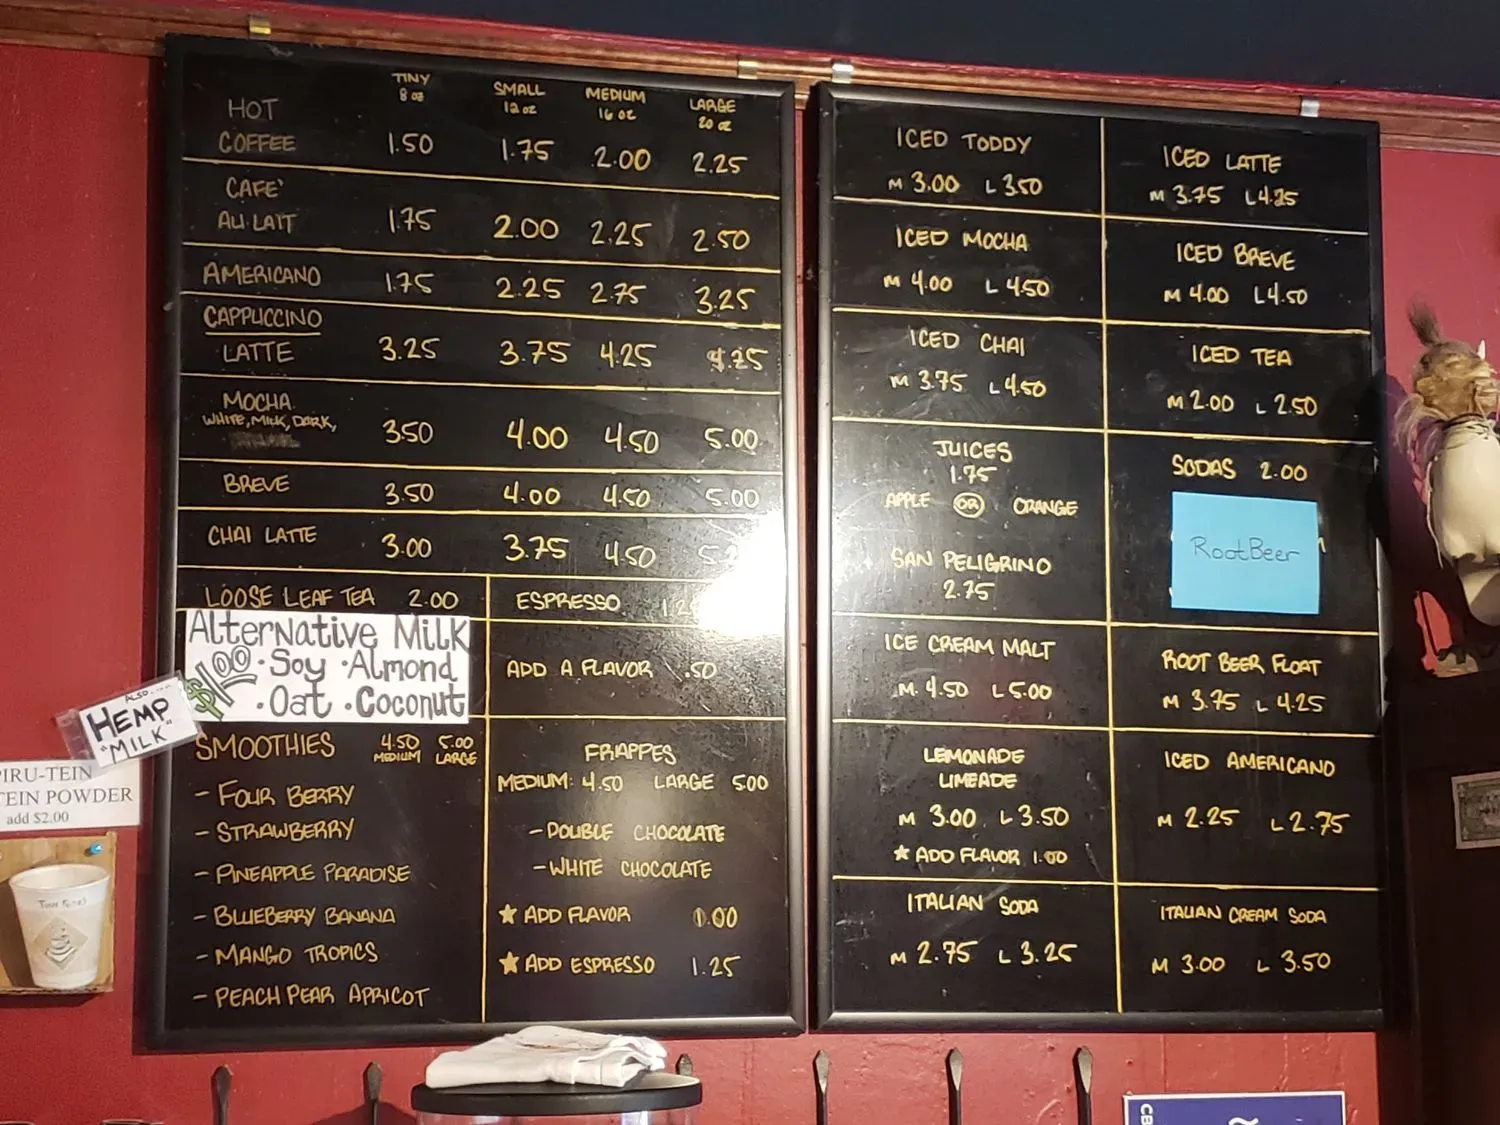 TINY SMALL MEDIUM LARGE
8 oz 12 oz 16 oz 20 oz
HOT
COFFEE 1.50 1.75 2.00 2.25
CAFE`
AU LAIT 1.75 2.00 2.25 2.50
AMERICANO 1.75 2.25 2.75 3.25
CAPPUCCINO
LATTE 3.25 3.75 4.25 4.25
MOCHA
WHITE, MILK, DARK,
3.50 4.00 4.50 5.00
BREVE 3.50 4.00 4.50 5.00
CHAI LATTE 3.00 3.75 4.50
LOOSE LEAF TEA 2.00
Alternative Milk
$1.00 · Soy · Almond
· Oat · Coconut
ALSO....
HEMP
"MILK"
SMOOTHIES 4.50 5.00
MEDIUM LARGE
- FOUR BERRY
- STRAWBERRY
- PINEAPPLE PARADISE
- BLUEBERRY BANANA
- MANGO TROPICS
- PEACH PEAR APRICOT
ESPRESSO
ADD A FLAVOR .50
FRAPPES
MEDIUM: 4.50 LARGE 5.00
- DOUBLE CHOCOLATE
- WHITE CHOCOLATE
★ ADD FLAVOR 1.00
★ ADD ESPRESSO 1.25
PIRU-TEIN
TEIN POWDER
add $2.00
ICED TODDY
M 3.00 L 3.50
ICED LATTE
M 3.75 L 4.25
ICED MOCHA
M 4.00 L 4.50
ICED BREVE
M 4.00 L 4.50
ICED CHAI
M 3.75 L 4.50
ICED TEA
M 2.00 L 2.50
JUICES
1.75
APPLE OR ORANGE
SAN PELIGRINO
2.75
SODAS 2.00
RootBeer
ICE CREAM MALT
M. 4.50 L 5.00
ROOT BEER FLOAT
M 3.75 L 4.25
LEMONADE
LIMEADE
M 3.00 L 3.50
★ ADD FLAVOR 1.00
ICED AMERICANO
M 2.25 L 2.75
ITALIAN SODA
M 2.75 L 3.25
ITALIAN CREAM SODA
M 3.00 L 3.50
CB